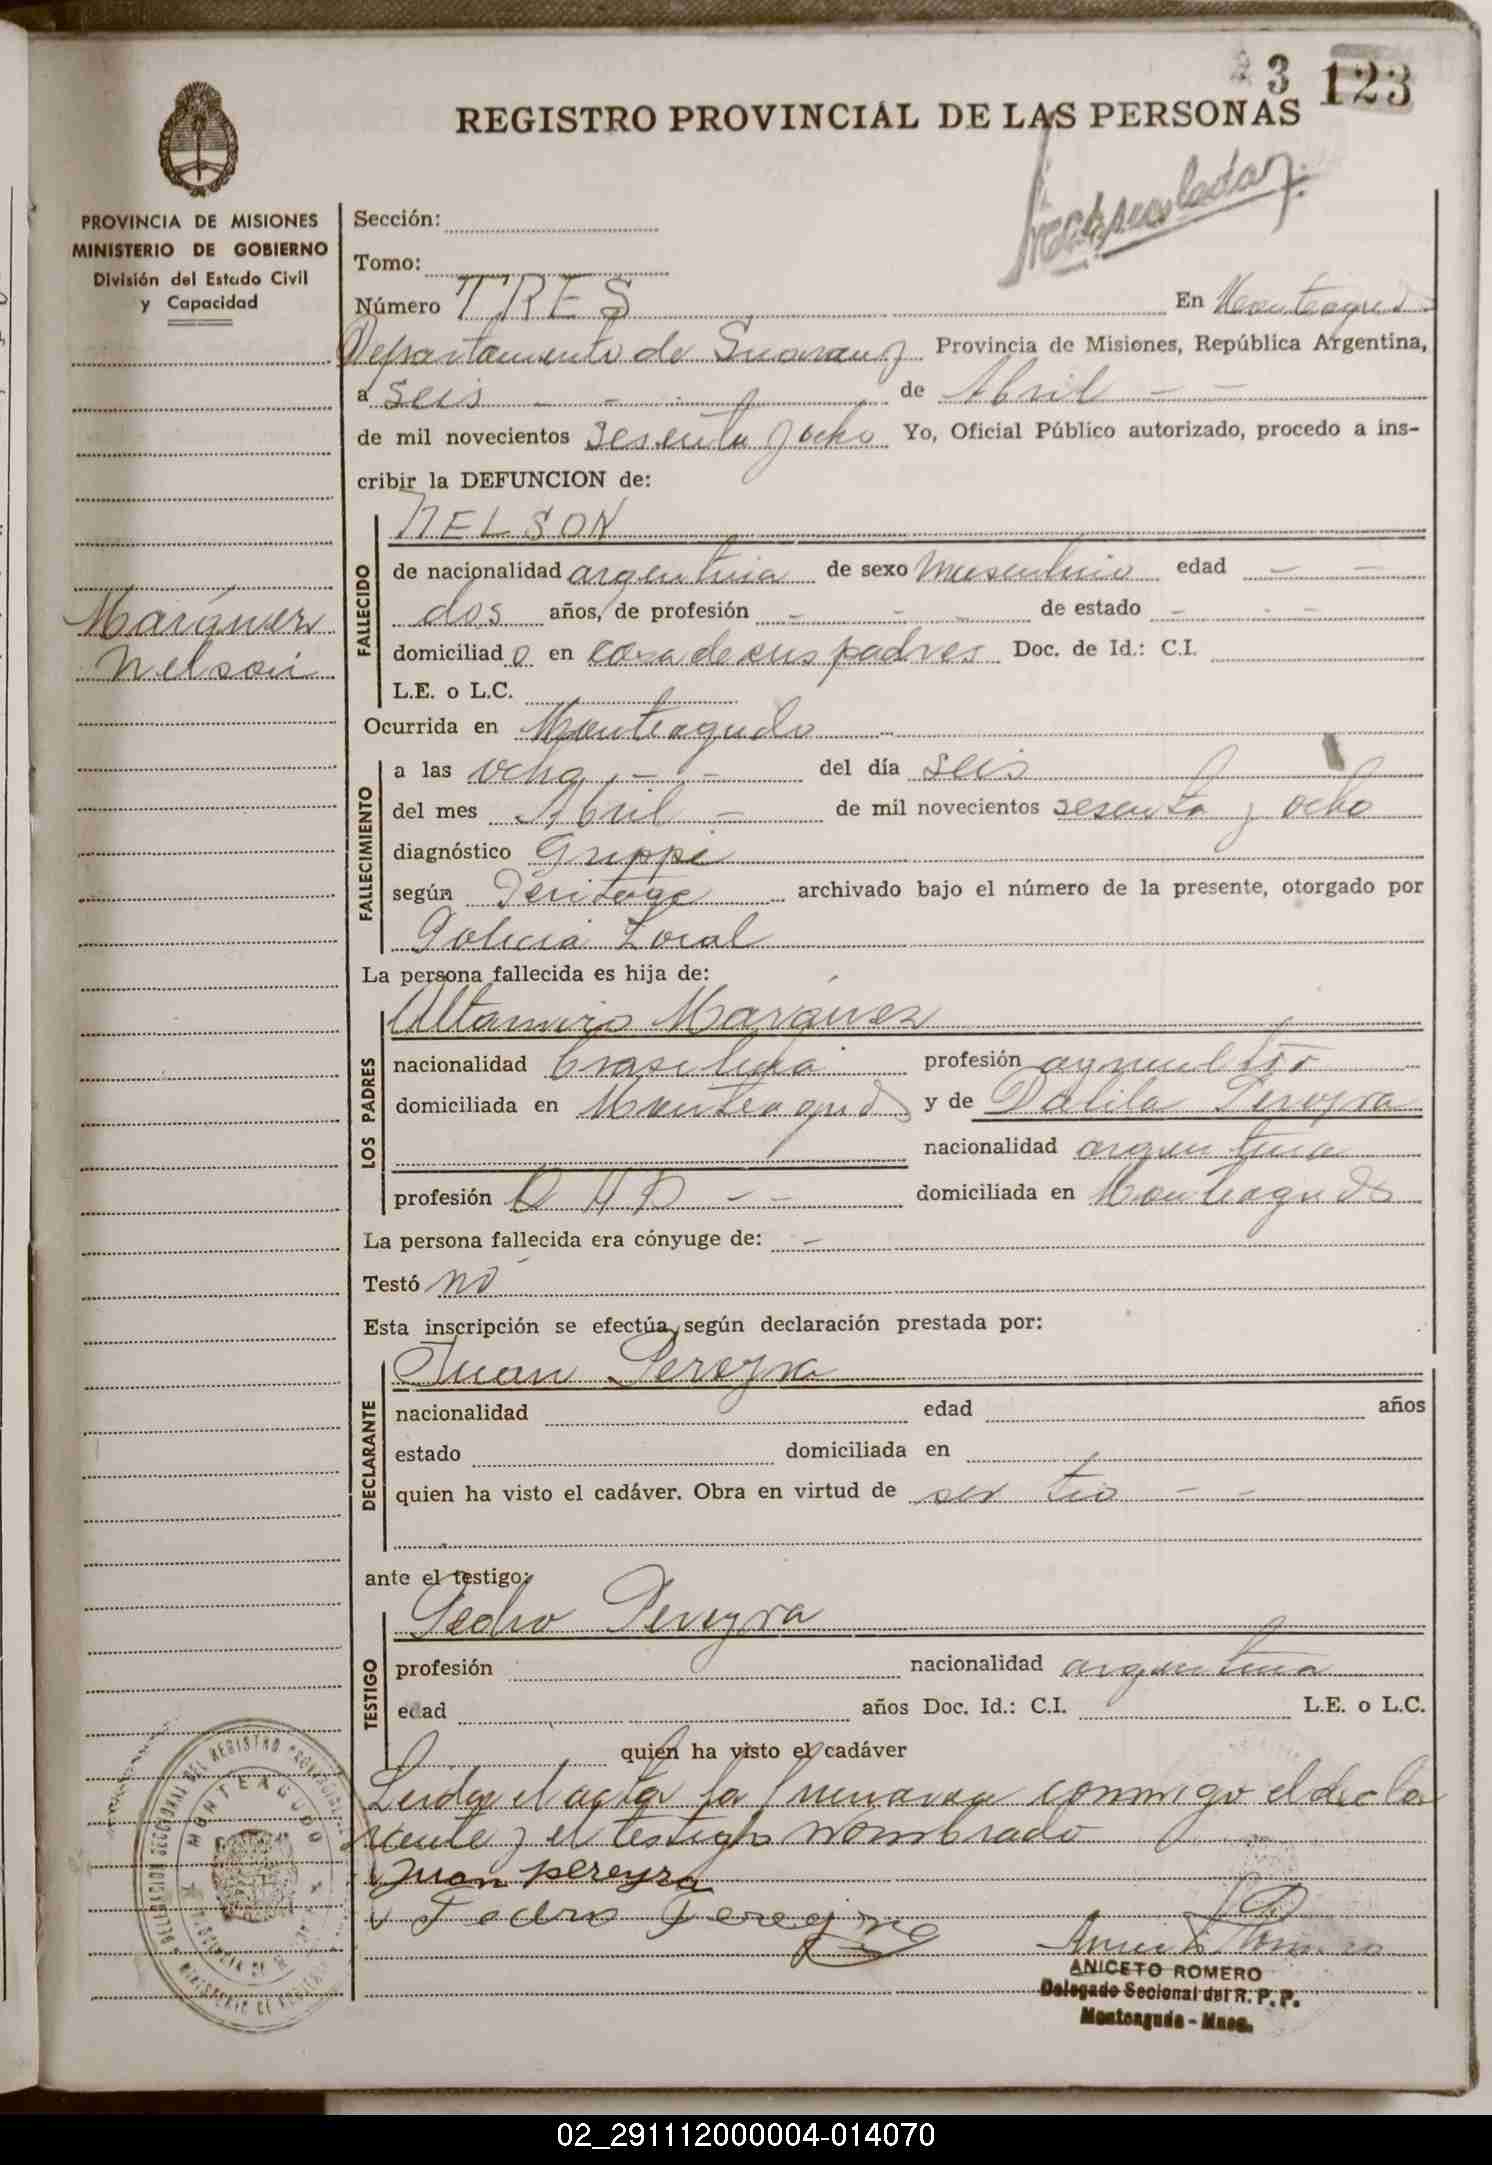 3 123
REGISTRO PROVINCIAL DE LAS PERSONAS
PROVINCIA DE MISIONES
MINISTERIO DE GOBIERNO
División del Estado Civil
y Capacidad
Marquez
Nelson
Sección:
Tomo:
Número TRES En Monteagudo
Departamento de Guarany Provincia de Misiones, República Argentina,
a seis - - - de Abril - -
de mil novecientos sesenta y ocho Yo, Oficial Público autorizado, procedo a ins-
cribir la DEFUNCION de:
FALLECIDO
NELSON
de nacionalidad argentina de sexo Masculino edad - -
dos años, de profesión - - - de estado - - -
domiciliad o en casa de sus padres Doc. de Id.: C.I.
L.E. o L.C.
Ocurrida en Monteagudo
FALLECIMIENTO
a las ocho, - - del día seis
del mes Abril - de mil novecientos sesenta y ocho
diagnóstico Grippe
según Peritage archivado bajo el número de la presente, otorgado por
Policia Local
La persona fallecida es hija de:
LOS PADRES
Altamiro Marquez
nacionalidad brasileña profesión agricultor
domiciliada en Monteagudo y de Dalila Pereyra
nacionalidad argentina
profesión Q H D - - domiciliada en Monteagudo
La persona fallecida era cónyuge de: -
Testó no
Esta inscripción se efectúa, según declaración prestada por:
DECLARANTE
Juan Pereyra
nacionalidad edad años
estado domiciliada en
quien ha visto el cadáver. Obra en virtud de ser tio - -
ante el testigo:
TESTIGO
Pedro Pereyra
profesión nacionalidad argentina
edad años Doc. Id.: C.I. L.E. o L.C.
quien ha visto el cadáver
Leida el acta la firman conmigo el decla
rante y el testigo nombrado
Juan pereyra
Pedro Pereyra
MONTEAGUDO
ANICETO ROMERO
Delegado Secional del R. P. P.
Monteagudo - Mnes.
02_291112000004-014070